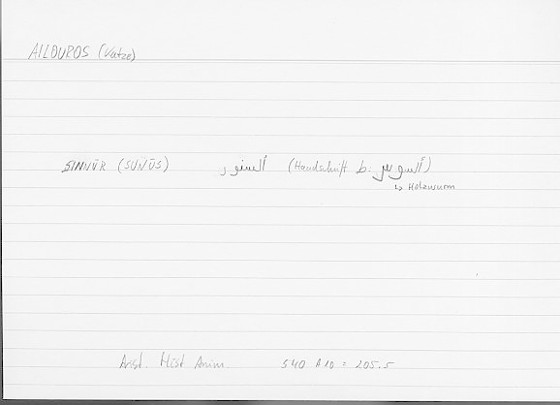 AILOUROS (Katze)
SINNŪR (SUNŪS) السنور (Handschrift b. السوس)
↳ Holzwurm
Arist. Hist. Anim. 540 A 10 = 205.5